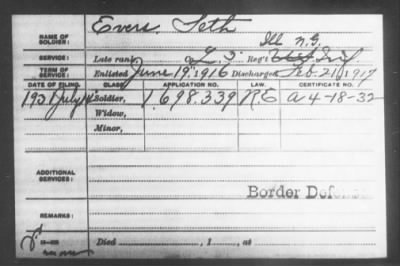 NAME OF SOLDIER: Evers. Seth
Ill N.G.
SERVICE: Late rank, Reg't Inf
TERM OF SERVICE: Enlisted June 19" 1916 Discharged Feb. 21, 1917
DATE OF FILING. CLASS. APPLICATION NO. LAW. CERTIFICATE NO.
1931 July Soldier, 1,698.339 R.E a 4-18-32
Widow,
Minor,
ADDITIONAL SERVICES:
Border Defense
REMARKS:
Died , 1 , at